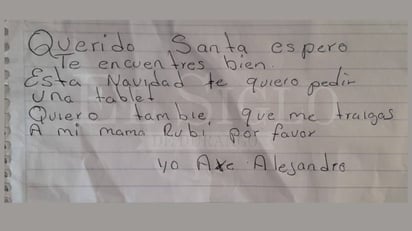 Querido Santa espero
Te encuentres bien.
Esta Navidad te quiero pedir
una tablet
Quiero tambie, que me traigas
A mi mama Rubi por favor
yo Axe Alejandro